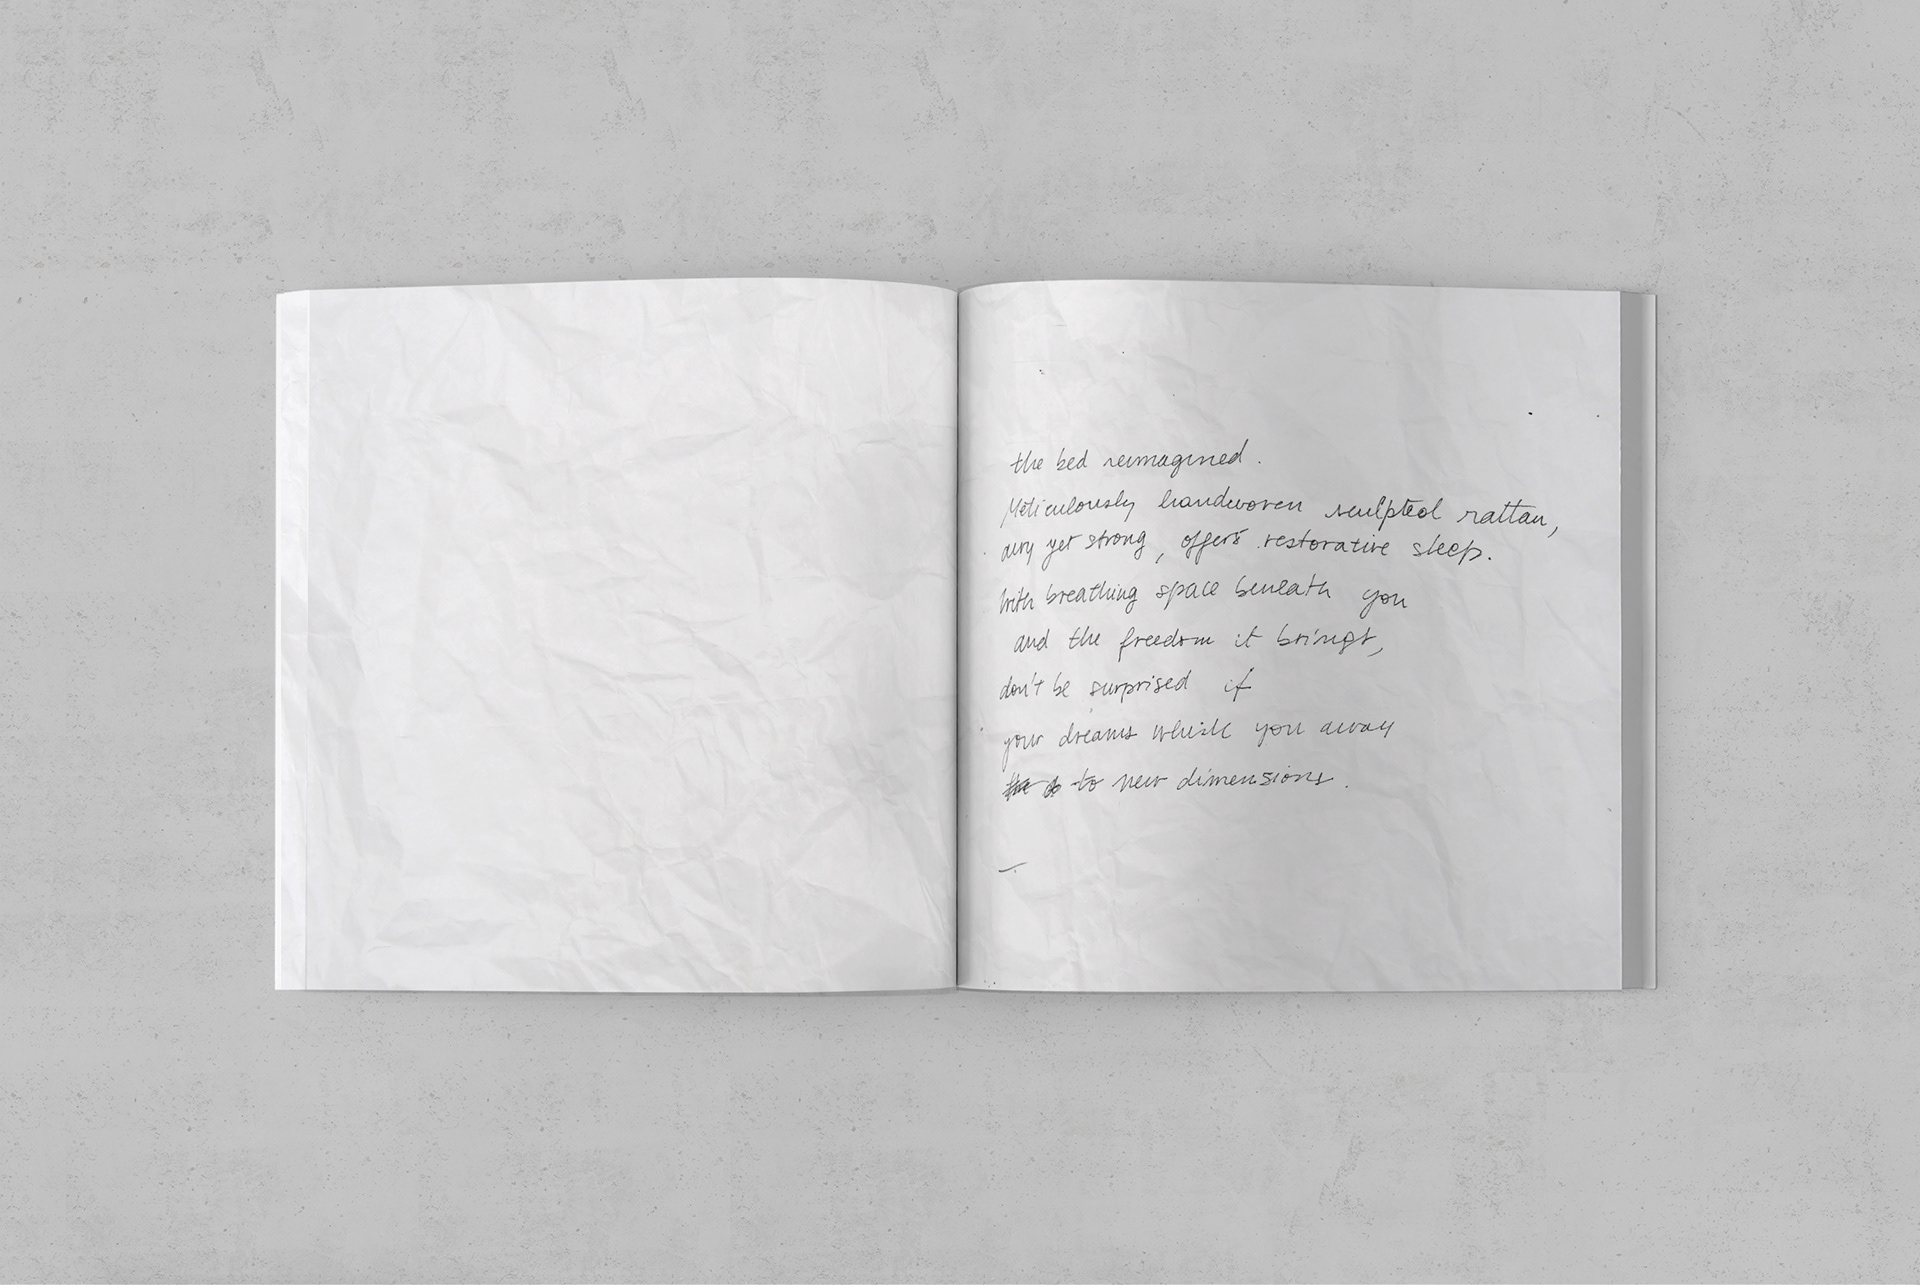 the bed reimagined.
Meticulously handwoven sculpted rattan,
airy yet strong, offers restorative sleep.
With breathing space beneath you
and the freedom it brings,
don't be surprised if
your dreams whisk you away
to new dimensions.